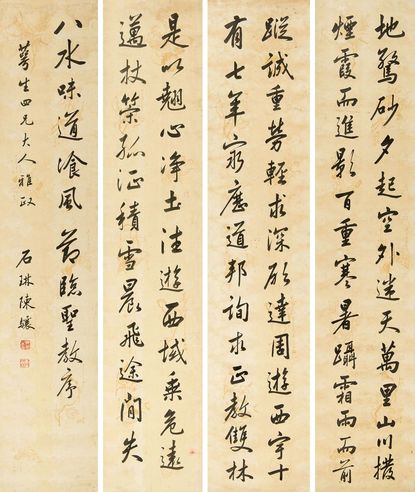 地驚砂夕起空外迷天萬里山川撥
煙霞而進影百重寒暑躡霜雨而前
蹤誠重勞輕求深願達周遊西宇十
有七年窮歷道邦詢求正教雙林
是以翹心净土往遊西域乘危遠
邁杖策孤征積雪晨飛途間失
八水味道飡風 節臨聖教序
萼生四兄大人雅政
石琳陳驤